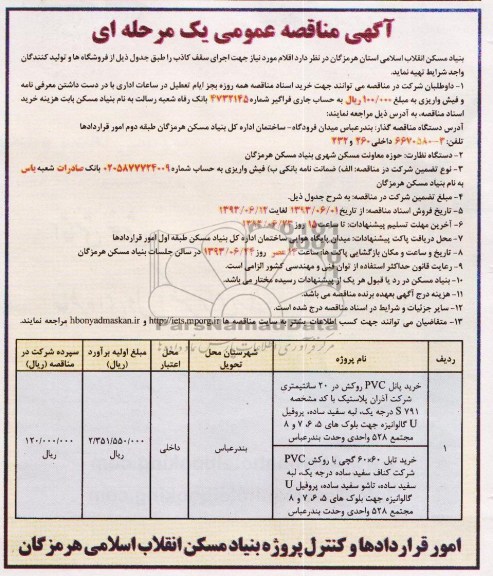 آگهی مناقصه عمومی یک مرحله ای
بنیاد مسکن انقلاب اسلامی استان هرمزگان در نظر دارد اقلام مورد نیاز جهت اجرای سقف کاذب را طبق جدول ذیل از فروشگاه ها و تولید کنندگان
واجد شرایط تهیه نماید.
۱- داوطلبان شرکت در مناقصه می توانند جهت خرید اسناد مناقصه همه روزه بجز ایام تعطیل در ساعات اداری با در دست داشتن معرفی نامه
و فیش واریزی به مبلغ ۱۰۰/۰۰۰ ریال به حساب جاری فراگیر شماره ۴۷۳۲۱۴۵ بانک رفاه شعبه رسالت به نام بنیاد مسکن بابت هزینه خرید
اسناد مناقصه، به آدرس ذیل مراجعه نمایند:
آدرس دستگاه مناقصه گذار: بندرعباس میدان فرودگاه- ساختمان اداره کل بنیاد مسکن هرمزگان طبقه دوم امور قراردادها
تلفن: ۳-۶۶۷۰۵۸۰ داخلی ۲۶۰ و ۲۳۲
۲- دستگاه نظارت: حوزه معاونت مسکن شهری بنیاد مسکن هرمزگان
۳- نوع تضمین شرکت در مناقصه: الف) ضمانت نامه بانکی ب) فیش واریزی به حساب شماره ۰۲۰۵۸۷۷۷۲۴۰۰۹ بانک صادرات شعبه یاس
به نام بنیاد مسکن هرمزگان
۴- مبلغ تضمین شرکت در مناقصه: به شرح جدول ذیل.
۵- تاریخ فروش اسناد مناقصه: از تاریخ ۱۳۹۳/۰۶/۰۱ لغایت ۱۳۹۳/۰۶/۱۲
۶- آخرین مهلت تسلیم پیشنهادات: تا ساعت ۱۵ روز
۷- محل دریافت پاکت پیشنهادات: میدان پایگاه هوایی ساختمان اداره کل بنیاد مسکن طبقه اول امور قراردادها
۸- تاریخ و ساعت و مکان بازگشایی پاکت ها: ساعت عصر روز ۱۳۹۳/۰۶/۲۴ در سالن جلسات بنیاد مسکن هرمزگان
۹- رعایت قانون حداکثر استفاده از توان فنی و مهندسی کشور الزامی است.
۱۰- بنیاد مسکن در رد یا قبول هر یک از پیشنهادات رسیده مختار می باشد.
۱۱- هزینه درج آگهی بعهده برنده مناقصه می باشد.
۱۲- سایر جزئیات و شرایط در اسناد مناقصه درج شده است.
۱۳- متقاضیان می توانند جهت کسب اطلاعات بیشتر به سایت مناقصه ها http://iets.mporg.ir و hbonyadmaskan.ir مراجعه نمایند.
ParsNamadData
ردیف
نام پروژه
شهرستان محل تحویل
محل اعتبار
مبلغ اولیه برآورد (ریال)
سپرده شرکت در مناقصه (ریال)
۱
خرید پانل PVC روکش در ۲۰ سانتیمتری
شرکت آذران پلاستیک با کد مشخصه
S ۷۹۱ درجه یک، لبه سفید ساده، پروفیل
U گالوانیزه جهت بلوک های ۵، ۶، ۷ و ۸
مجتمع ۵۲۸ واحدی وحدت بندرعباس
خرید تایل ۶۰×۶۰ گچی با روکش PVC
شرکت کناف سفید ساده درجه یک، لبه
سفید ساده، تاشو سفید ساده، پروفیل U
گالوانیزه جهت بلوک های ۵، ۶، ۷ و ۸
مجتمع ۵۲۸ واحدی وحدت بندرعباس
بندرعباس
داخلی
۲/۳۵۱/۵۵۰/۰۰۰
ریال
۱۲۰/۰۰۰/۰۰۰
ریال
امور قراردادها و کنترل پروژه بنیاد مسکن انقلاب اسلامی هرمزگان